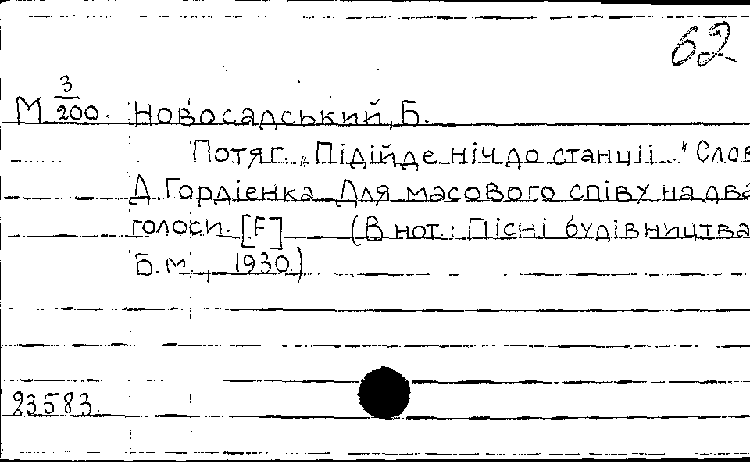 62
М 3/200. Новосадський, Б.
Потяг. „Підійде ніч до станції..." Слов
Д. Гордієнка. Для масового співу на два
голоси. [F] (В нот.: Пісні будівництва
Б.м., 1930.)
23583.